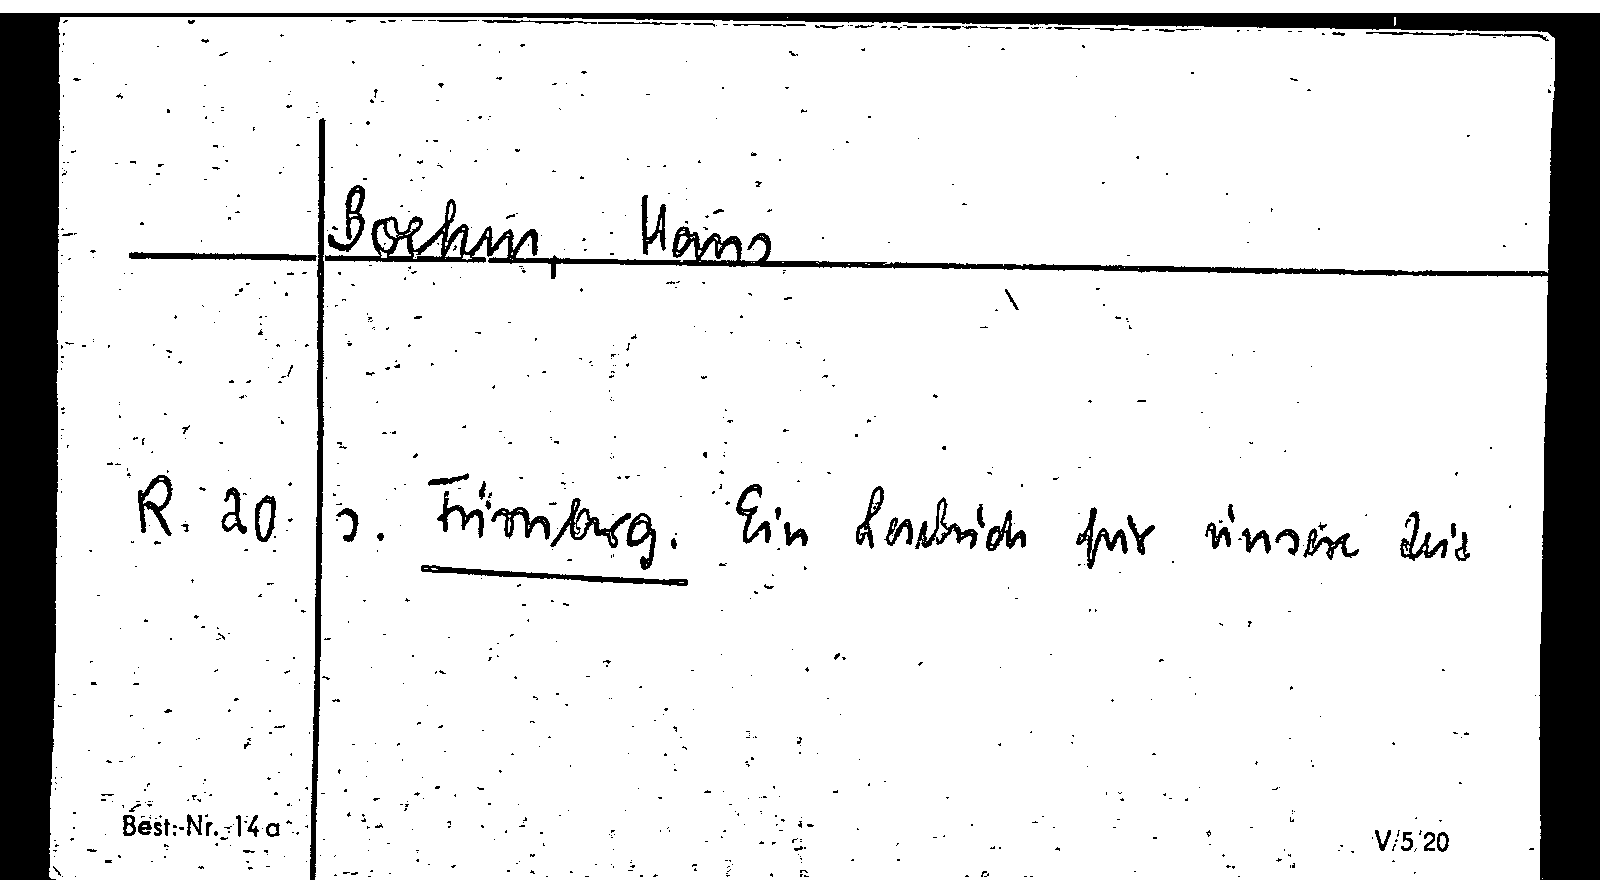 Boehm, Hans
R. 20 s. Fürnberg. Ein Lesebuch für unsere Zeit
Best.-Nr. 14a V/5/20